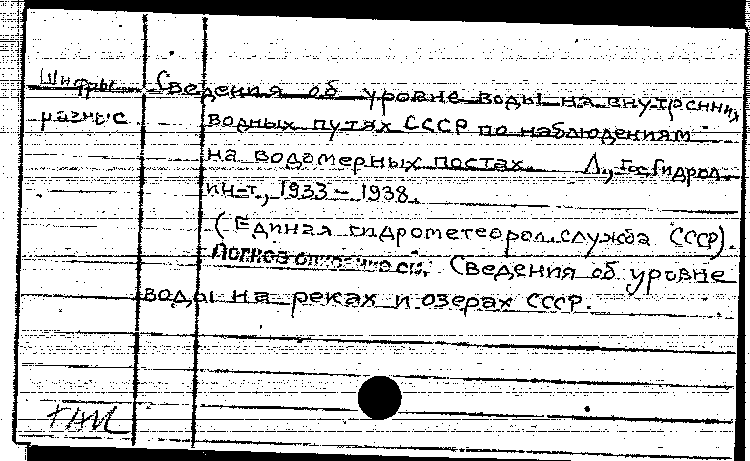 Шифры
разные
Сведения об уровне воды на внутренних
водных путях СССР по наблюдениям
на водомерных постах. Л., Гос. Гидрол.
ин-т., 1933 – 1938.
(Единая гидрометеорол. служба СССР).
Сведения об уровне
воды на реках и озерах СССР.